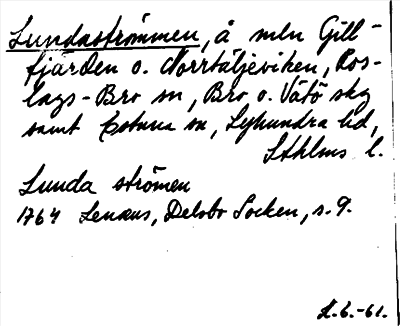 Lundaströmmen, å mln Gill-
fjärden o. Norrtäljeviken, Ros-
lags-Bro sn, Bro o. Vätö skg
samt Estuna sn, Lyhundra hd,
Sthlms l.
Lunda strömen
1764 Lenæus, Delsbo Socken, s. 9.
L.6.-61.